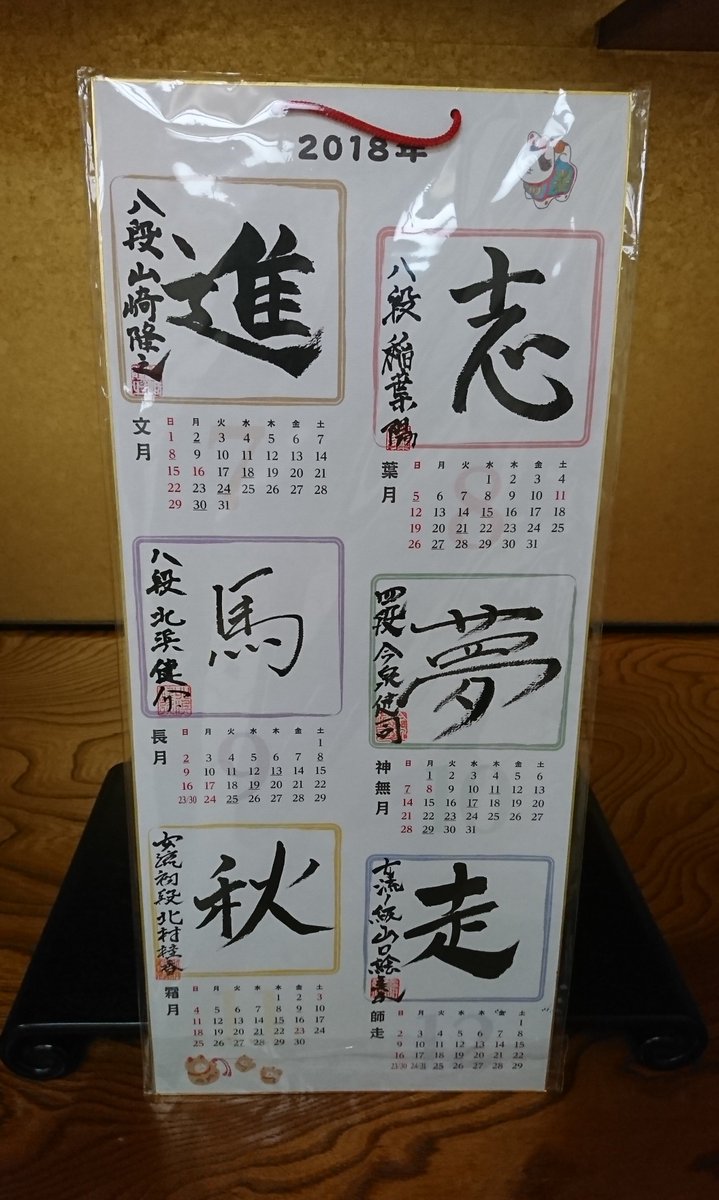 2018年
八段 山崎隆之
進
文月
7
日 月 火 水 木 金 土
1 2 3 4 5 6 7
8 9 10 11 12 13 14
15 16 17 18 19 20 21
22 23 24 25 26 27 28
29 30 31
八段 稲葉陽
志
葉月
8
日 月 火 水 木 金 土
1 2 3 4
5 6 7 8 9 10 11
12 13 14 15 16 17 18
19 20 21 22 23 24 25
26 27 28 29 30 31
八段 北浜健介
馬
長月
9
日 月 火 水 木 金 土
1
2 3 4 5 6 7 8
9 10 11 12 13 14 15
16 17 18 19 20 21 22
23/30 24 25 26 27 28 29
四段 今泉健司
夢
神無月
日 月 火 水 木 金 土
1 2 3 4 5 6
7 8 9 10 11 12 13
14 15 16 17 18 19 20
21 22 23 24 25 26 27
28 29 30 31
女流初段 北村桂香
秋
霜月
日 月 火 水 木 金 土
1 2 3
4 5 6 7 8 9 10
11 12 13 14 15 16 17
18 19 20 21 22 23 24
25 26 27 28 29 30
女流1級 山口絵美菜
走
師走
日 月 火 水 木 金 土
1
2 3 4 5 6 7 8
9 10 11 12 13 14 15
16 17 18 19 20 21 22
23/30 24/31 25 26 27 28 29